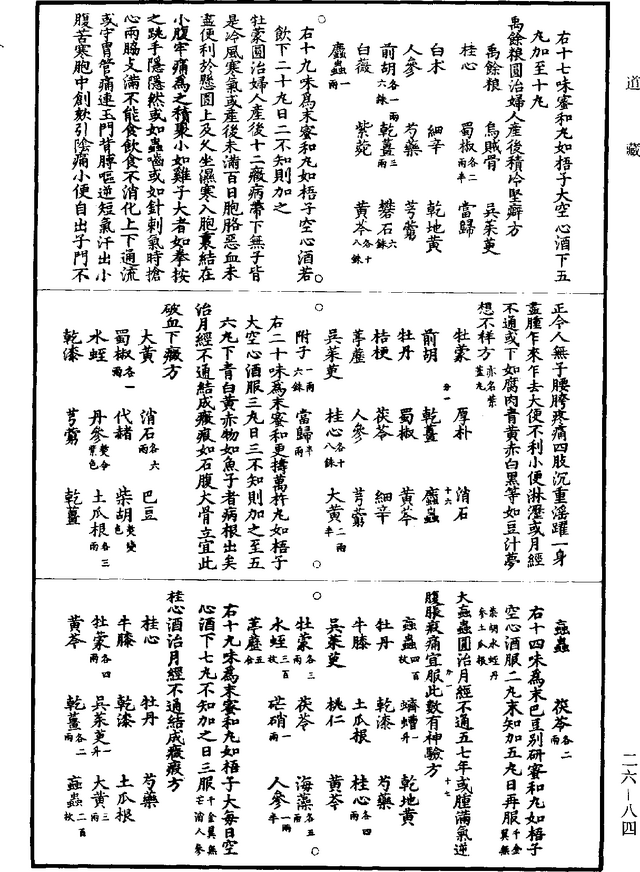 道藏
右十七味爲末蜜和丸如梧子大空心酒下五
丸加至十丸
禹餘粮圓治婦人産後積冷堅癖方
禹餘粮 烏賊骨 吳茱萸
桂心 蜀椒各二兩半 當歸
白术 細辛 乾地黄
人參 芍藥 芎藭
前胡各一兩六銖 乾薑三兩 礬石六銖
白薇 紫菀 黄芩各十八銖
䗪蟲一兩
右十九味爲末蜜和丸如梧子空心酒若
飲下二十丸日二不知則加之
牡蒙圓治婦人産後十二癥病帶下無子皆
是冷風寒氣或産後未滿百日胞胳惡血未
盡便利於懸圊上及久坐濕寒入胞裏結在
小腹牢痛爲之積聚小如雞子大者如拳按
之跳手隱隱然或如蟲嚙或如針刺氣時搶
心兩脇支滿不能食飲食不消化上下通流
或守胃管痛連玉門背膊嘔逆短氣汗出小
腹苦寒胞中創欬引陰痛小便自出子門不
正令人無子腰胯疼痛四肢沉重淫躍一身
盡腫乍來乍去大便不利小便淋瀝或月經
不通或下如腐肉青黄赤白黑等如豆汁夢
想不祥方亦名紫蓋丸
牡蒙 厚朴 消石
前胡 乾薑 䗪蟲
牡丹 蜀椒 黄芩
桔梗 茯苓 細辛
葶藶 人參 芎藭
吳茱萸 桂心各十八銖 大黄二兩半
附子一兩六銖 當歸半兩
右二十味爲末蜜和更擣萬杵丸如梧子
大空心酒服三丸日三不知則加之至五
六丸下青白黄赤物如魚子者病根出矣
治月經不通結成癥瘕如石腹大骨立宜此
破血下癥方
大黄 消石各六兩 巴豆
蜀椒各一兩 代赭 柴胡熬變色
水蛭 丹參熬令紫色 土瓜根各三兩
乾漆 芎藭 乾薑
䖟蟲 茯苓各二兩
右十四味爲末巴豆别研蜜和丸如梧子
空心酒服二丸未知加五丸日再服千金翼無柴胡水蛭丹參土瓜根
大䖟蟲圓治月經不通五七年或腫滿氣逆
腹脹瘕痛宜服此數有神驗方
䖟蟲四百枚 蠐螬一升 乾地黄
牡丹 乾漆 芍藥
牛膝 土瓜根 桂心各四兩
吳茱萸 桃仁 黄芩
牡蒙各三兩 茯苓 海藻各五兩
水蛭三百枚 芒硝一兩 人參一兩半
葶藶五合
右十九味爲末蜜和丸如梧子大每日空
心酒下七丸不知加之日三服千金翼無芒消人參
桂心酒治月經不通結成癥瘕方
桂心 牡丹 芍藥
牛膝 乾漆 土瓜根
牡蒙各四兩 吳茱萸一升 大黄三兩
黄芩 乾薑各二兩 䖟蟲二百枚
二六—八四